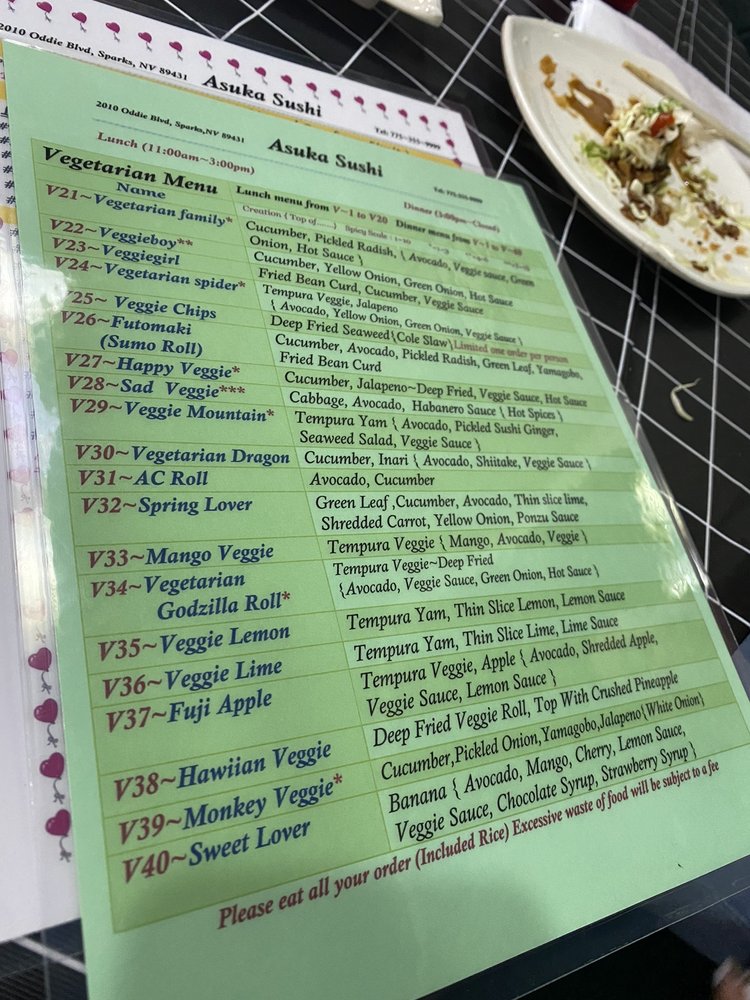 2010 Oddie Blvd, Sparks, NV 89431
Asuka Sushi
Tel: 775-355-9999
2010 Oddie Blvd, Sparks,NV 89431
Asuka Sushi
Lunch (11:00am~3:00pm)
Dinner (3:00pm~Closed)
Vegetarian Menu
Lunch menu from V~1 to V20 Dinner menu from V~1 to V~40
Name
Creation { Top of......} Spicy Scale : 1~10
V21~Vegetarian family*
Cucumber, Pickled Radish, { Avocado, Veggie sauce, Green
Onion, Hot Sauce }
V22~Veggieboy**
Cucumber, Yellow Onion, Green Onion, Hot Sauce
V23~Veggiegirl
Fried Bean Curd, Cucumber, Veggie Sauce
V24~Vegetarian spider*
Tempura Veggie, Jalapeno
{ Avocado, Yellow Onion, Green Onion, Veggie Sauce }
V25~ Veggie Chips
Deep Fried Seaweed{Cole Slaw}Limited one order per person
V26~Futomaki
(Sumo Roll)
Cucumber, Avocado, Pickled Radish, Green Leaf, Yamagobo,
Fried Bean Curd
V27~Happy Veggie*
Cucumber, Jalapeno~Deep Fried, Veggie Sauce, Hot Sauce
V28~Sad Veggie***
Cabbage, Avocado, Habanero Sauce { Hot Spices }
V29~Veggie Mountain*
Tempura Yam { Avocado, Pickled Sushi Ginger,
Seaweed Salad, Veggie Sauce }
V30~Vegetarian Dragon
Cucumber, Inari { Avocado, Shiitake, Veggie Sauce }
V31~AC Roll
Avocado, Cucumber
V32~Spring Lover
Green Leaf ,Cucumber, Avocado, Thin slice lime,
Shredded Carrot, Yellow Onion, Ponzu Sauce
V33~Mango Veggie
Tempura Veggie { Mango, Avocado, Veggie }
V34~Vegetarian
Godzilla Roll*
Tempura Veggie~Deep Fried
{Avocado, Veggie Sauce, Green Onion, Hot Sauce }
V35~Veggie Lemon
Tempura Yam, Thin Slice Lemon, Lemon Sauce
V36~Veggie Lime
Tempura Yam, Thin Slice Lime, Lime Sauce
V37~Fuji Apple
Tempura Veggie, Apple { Avocado, Shredded Apple,
Veggie Sauce, Lemon Sauce }
V38~Hawiian Veggie
Deep Fried Veggie Roll, Top With Crushed Pineapple
V39~Monkey Veggie*
Cucumber,Pickled Onion,Yamagobo,Jalapeno{White Onion}
V40~Sweet Lover
Banana { Avocado, Mango, Cherry, Lemon Sauce,
Veggie Sauce, Chocolate Syrup, Strawberry Syrup }
Please eat all your order (Included Rice) Excessive waste of food will be subject to a fee